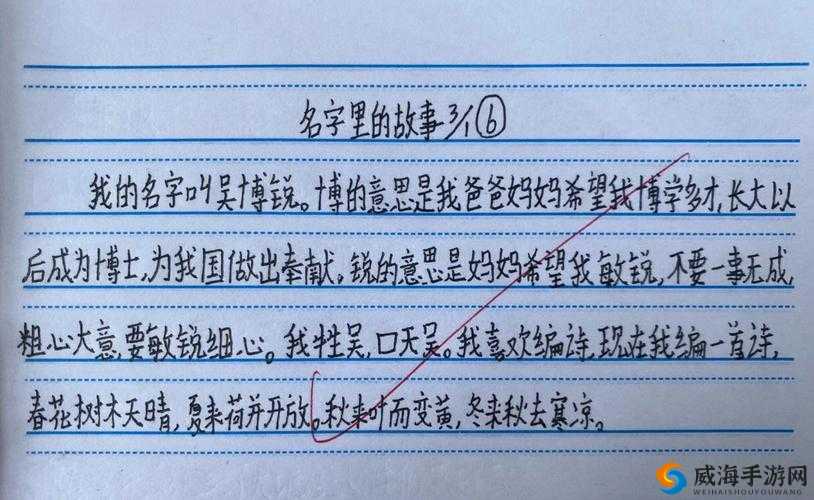 名字里的故事 3/1 ⑥
我的名字叫吴博锐。博的意思是我爸爸妈妈希望我博学多才,长大以
后成为博士,为我国做出奉献。锐的意思是妈妈希望我敏锐,不要一事无成,
粗心大意,要敏锐细心。我牲吴,口天吴。我喜欢编诗,现在我编一首诗,
春花树木天晴,夏来荷并开放。秋来叶而变黄,冬来秋去寒凉。
威海手游网
WEIHAISHOUYOUWANG